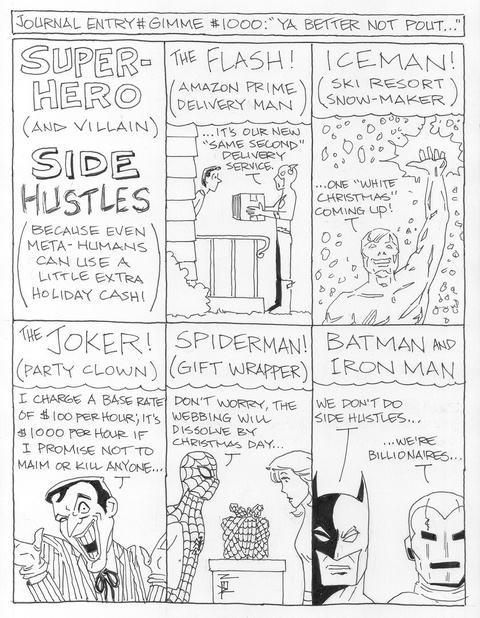 JOURNAL ENTRY # GIMME $1000: "YA BETTER NOT POUT..."
SUPER-
HERO
(AND VILLAIN)
SIDE
HUSTLES
(BECAUSE EVEN
META-HUMANS
CAN USE A
LITTLE EXTRA
HOLIDAY CASH!)
THE FLASH!
(AMAZON PRIME
DELIVERY MAN)
...IT'S OUR NEW
"SAME SECOND"
DELIVERY
SERVICE.
ICEMAN!
(SKI RESORT
SNOW-MAKER)
...ONE "WHITE
CHRISTMAS"
COMING UP!
THE JOKER!
(PARTY CLOWN)
I CHARGE A BASE RATE
OF $100 PER HOUR; IT'S
$1000 PER HOUR IF
I PROMISE NOT TO
MAIM OR KILL ANYONE...
SPIDERMAN!
(GIFT WRAPPER)
DON'T WORRY, THE
WEBBING WILL
DISSOLVE BY
CHRISTMAS DAY...
BATMAN AND
IRON MAN
WE DON'T DO
SIDE HUSTLES...
...WE'RE
BILLIONAIRES...